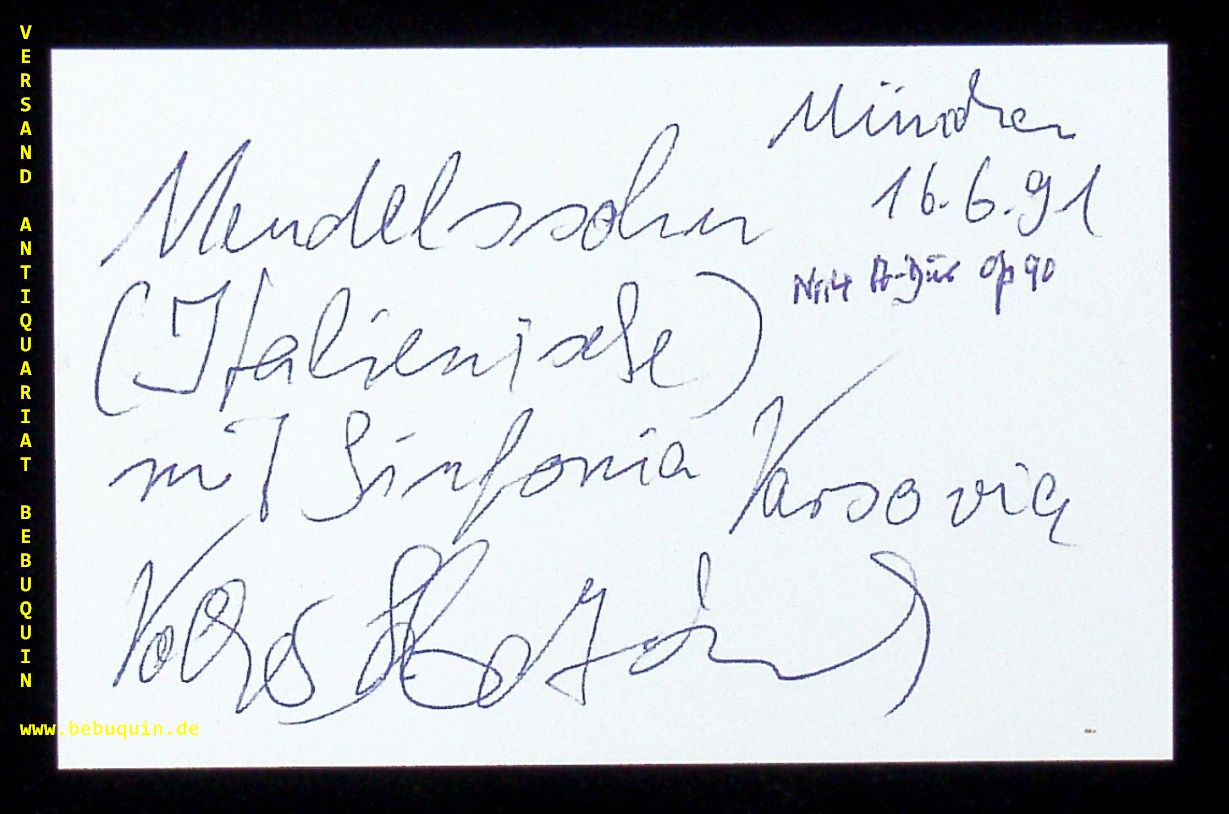 VERSAND ANTIQUARIAT BEBUQUIN
München
16.6.91
Mendelssohn
Nr.4 A-Dur Op 90
(Italienische)
mit Sinfonia Varsovia
www.bebuquin.de